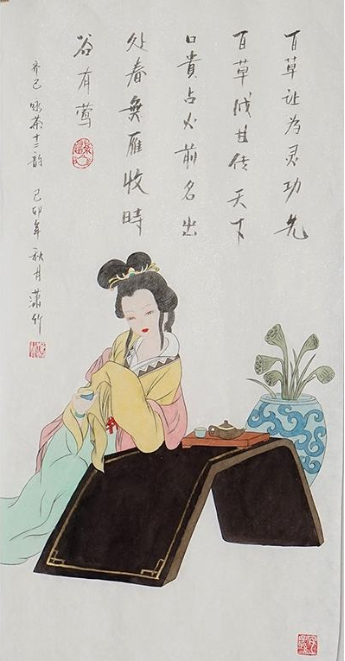 百草让为灵功先
百草成甘传天下
口貴占火前名出
处春無雁收時
谷有莺
齐己 咏茶十二韵 己卯年 秋月 瀟竹